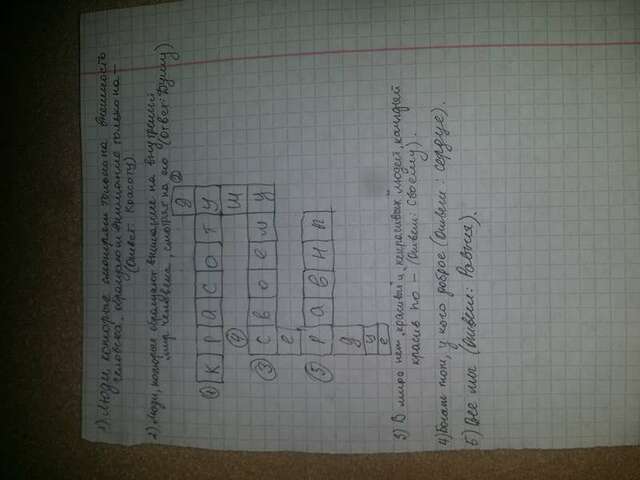 1) Люди, которые смотрят только на внешность
человека, обращают внимание только на –
(Ответ: Красоту).
2) Люди, которые обращают внимание на внутрений
мир человека, смотрят на его (Ответ: Душу)
Д 2
1 К Р А С О Т У
4 Ш
3 С В О Е М У
Е
5 Р А В Н
Д
Ц
Е
3) В мире нет „красивых" и „некрасивых" людей, каждый
красив по – (Ответ: Своему).
4) Богат тот, у кого доброе (Ответ: сердце).
5) Все мы (Ответ: Равны).